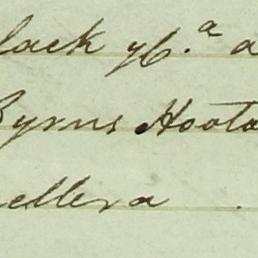 lack y C.ª a
Byrns Hoota
ellera